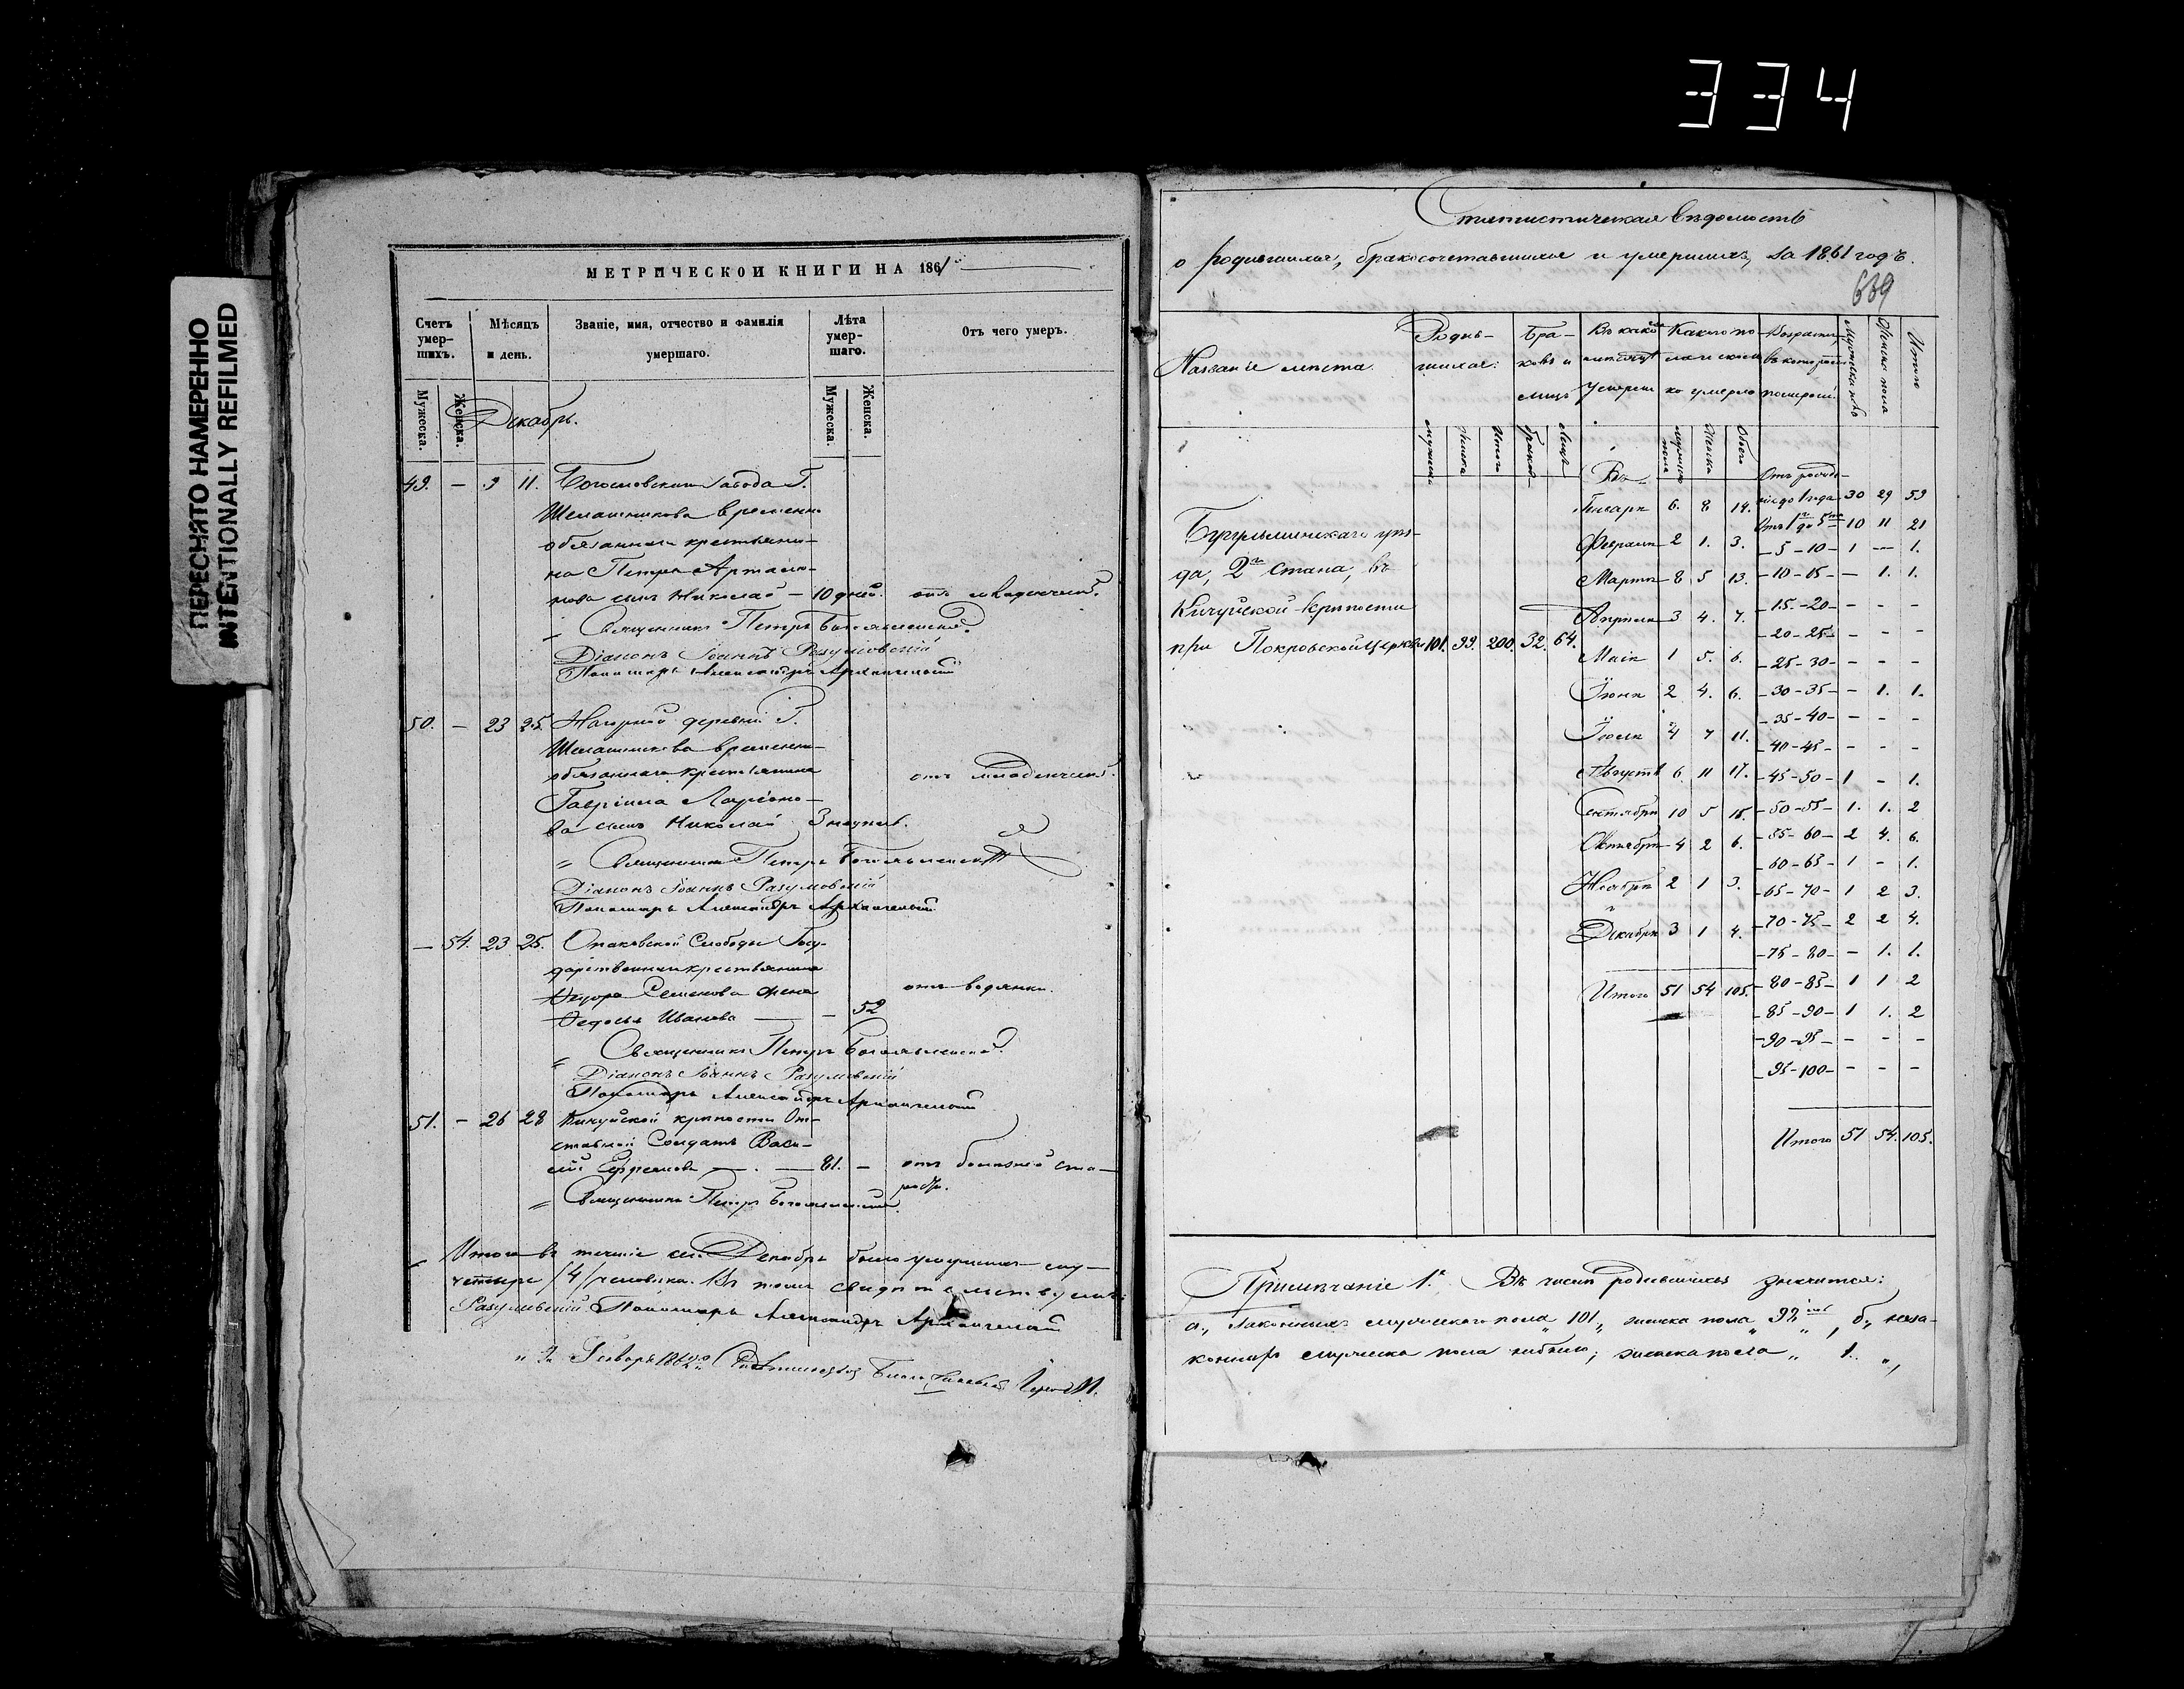 334
ПЕРЕСНЯТО НАМЕРЕННО
INTENTIONALLY REFILMED
МЕТРИЧЕСКОЙ КНИГИ НА 1861
Счетъ умер-шихъ. Мѣсяцъ и день. Званіе, имя, отчество и фамилія умершаго. Лѣта умер-шаго. Отъ чего умеръ.
Мужеска. Женска. Мужеска. Женска.
Декабрь.
49. — 9 11. Богословскаго Завода Г.
Шелашникова временно
обязаннаго крестьяни-
на Петра
сынъ Николай — 10 дней. отъ младенческой.
Священникъ Петръ Богоявленской.
Діаконъ Іоаннъ Разумовскій
Пономарь Александръ Архангельскій
50. — 23 25 Нагорной деревни Г.
Шелашникова временно-
обязаннаго крестьянина
Гавріила Ларіоно-
ва сынъ Николай 3 недѣль. отъ младенческой.
Священникъ Петръ Богоявленскій
Діаконъ Іоаннъ Разумовскій
Пономарь Александръ Архангельскій
— 54. 23 25. Слободы Госу-
дарственнаго крестьянина
Ѳедора Семенова жена
Ѳедосья Иванова — — 52 отъ водянки.
Священникъ Петръ Богоявленской.
Діаконъ Іоаннъ Разумовскій
Пономарь Александръ Архангельскій
51. — 26 28 Кичуйской крѣпости От-
ставной Солдатъ Васи-
лій — 81. — отъ болѣзней ста-
рости.
Священникъ Петръ Богоявленскій
Итого въ теченіе Декабря было умершихъ
четыре /4/ человѣка. Въ томъ свидѣтельствуемъ:
Разумовскій Пономарь Александръ Архангельскій
Статистическая вѣдомость
о родившихся, бракосочетавшихся и умершихъ, за 1861 годъ.
639
Названіе мѣста. Родив-шихся: Бра-ковъ и лицъ Какого по-ла и сколь-ко умерло Возрастъ въ которомъ померли. Мужска полъ Женска пола Итого
мужска женска Итого браков Лицъ Въ мужска пола Женска Обоего
Бугульминскаго уѣз-
да, 2го стана, въ
Кичуйской крѣпости
при Покровской Церкви 101. 99. 200. 32. 64.
Январѣ 6. 8 14.
Февралѣ 2 1. 3.
Мартѣ 8 5 13.
Апрѣлѣ 3 4. 7.
Маѣ 1 5. 6.
Іюнѣ 2 4. 6.
Іюлѣ 4 7 11.
Августѣ 6. 11 17.
Сентябрѣ 10 5 15.
Октябрѣ 4 2 6.
Ноябрѣ 2 1 3.
Декабрѣ 3 1 4.
Итого 51 54 105.
Отъ рожде-
нія до 1 года 30 29 59
Отъ 1го до 5ти 10 11 21
— 5 - 10 — 1 — 1.
— 10 - 15 — — 1. 1.
— 15 - 20 — - - -
— 20 - 25 — - - -
— 25 - 30 — - - -
— 30 - 35 — - 1. 1.
— 35 - 40 — - - -
— 40 - 45 — - - -
— 45 - 50 — 1 - 1.
— 50 - 55 — 1. 1. 2
— 55 - 60 — 2 4. 6.
— 60 - 65 — 1 - 1.
— 65 - 70 — 1 2 3.
— 70 - 75 — 2 2 4.
— 75 - 80 — - 1. 1.
— 80 - 85 — 1 1 2
— 85 - 90 — 1 1. 2
— 90 - 95 — - - -
— 95 - 100 — - - -
Итого 51 54. 105.
Примѣчаніе 1е. Въ числѣ родившихся значится:
а., Законныхъ мужескаго пола „101„ женска пола „99„, б., неза-
конныхъ мужеска пола женска пола „ 1. „,